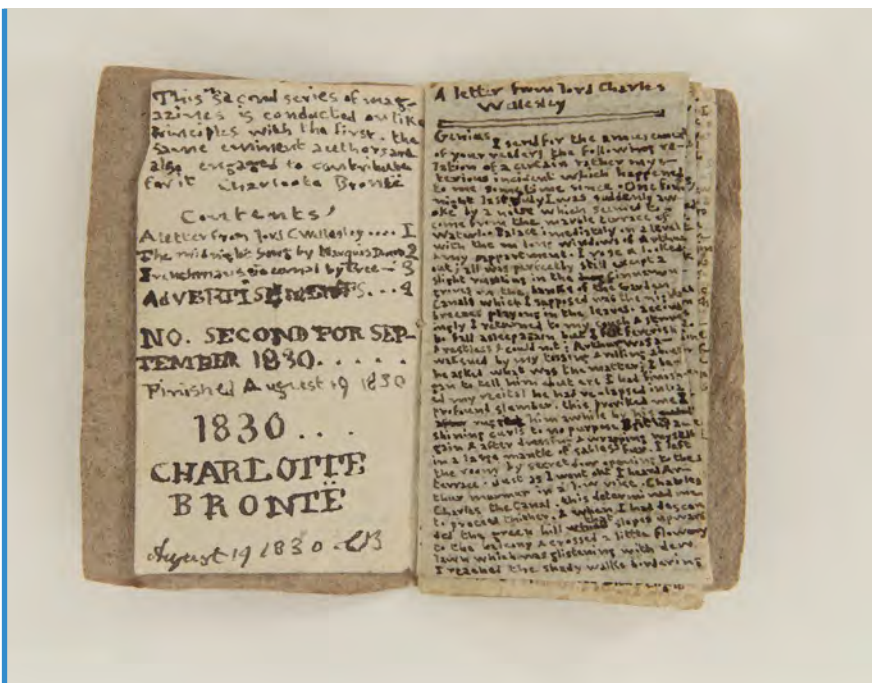 This second series of mag-
azines is conducted on like
principles with the first. the
same eminent authors are
also engaged to contribute
for it Charlotte Brontë
Contents'
A letter from lord C Wellesley .... 1
The midnight song by Marquis Douro 2
Frenchman's journal by Tree - 3
ADVERTISEMENTS... 4
NO. SECOND FOR SEP-
TEMBER 1830.....
Finished August 19 1830
1830...
CHARLOTTE
BRONTË
August 19 1830. CB
A letter from lord Charles
Wellesley
Genius I send for the amusement
of your readers the following re-
lation of a certain rather mys-
terious incident which happened
to me sometime since. One fine
night last July I was suddenly aw
oke by a noise which seemed to
come from the marble terrace of
Waterloo Palace imediatly on a level
with the long windows of Arthur
& my appartment. I rose & looked
out; all was perfectly still except a
slight rustling in the cinnamon
groves on the banks of the Garden
Canals which I supposed was the night
breezes playing in the leaves. accord
ingly I returned to my couch & strove
to fall asleep again but I felt feverish
& restless & could not; Arthur was a-
wakened by my tossing & rolling about
he asked what was the matter; I be-
gan to tell him but ere I had finish
ed my recital he had re-lapsed into a
profound slumber. this provoked me I
him awhile by his
shining curls to no purpose
gain & after dressing & wrapping myself
in a large mantle of sables fur. I left
the room by secret door opening to the
terrace. Just as I went out I heard Ar-
thur murmer in a low voice. Charles
Charles the Canal. this determined me
to proceed thither. & when I had descen
ded the green hill slopes upward
to the balcony & crossed a little flowery
lawn which was glistening with dew.
I reached the shady walks bordering